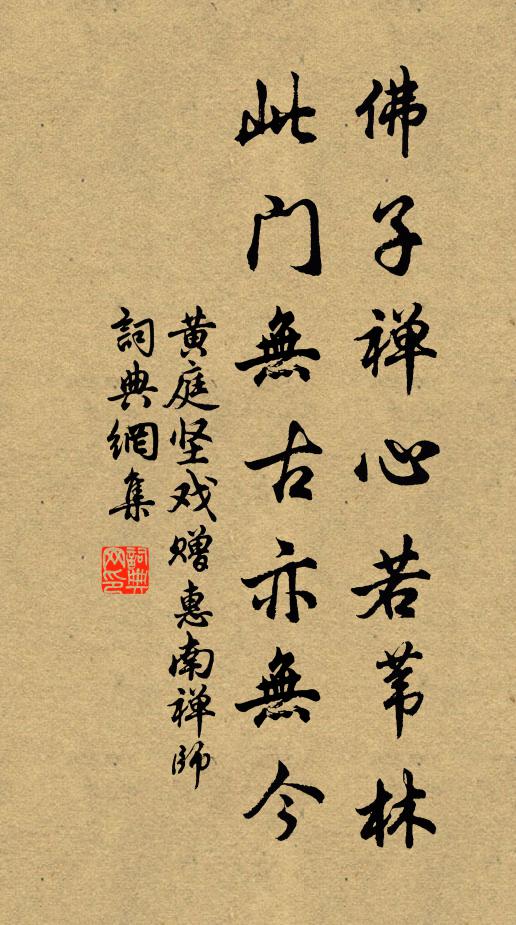 佛子禅心若苇林
此门無古亦無今
黄庭坚戏赠惠南禅师
詞典網集
詞典
网印